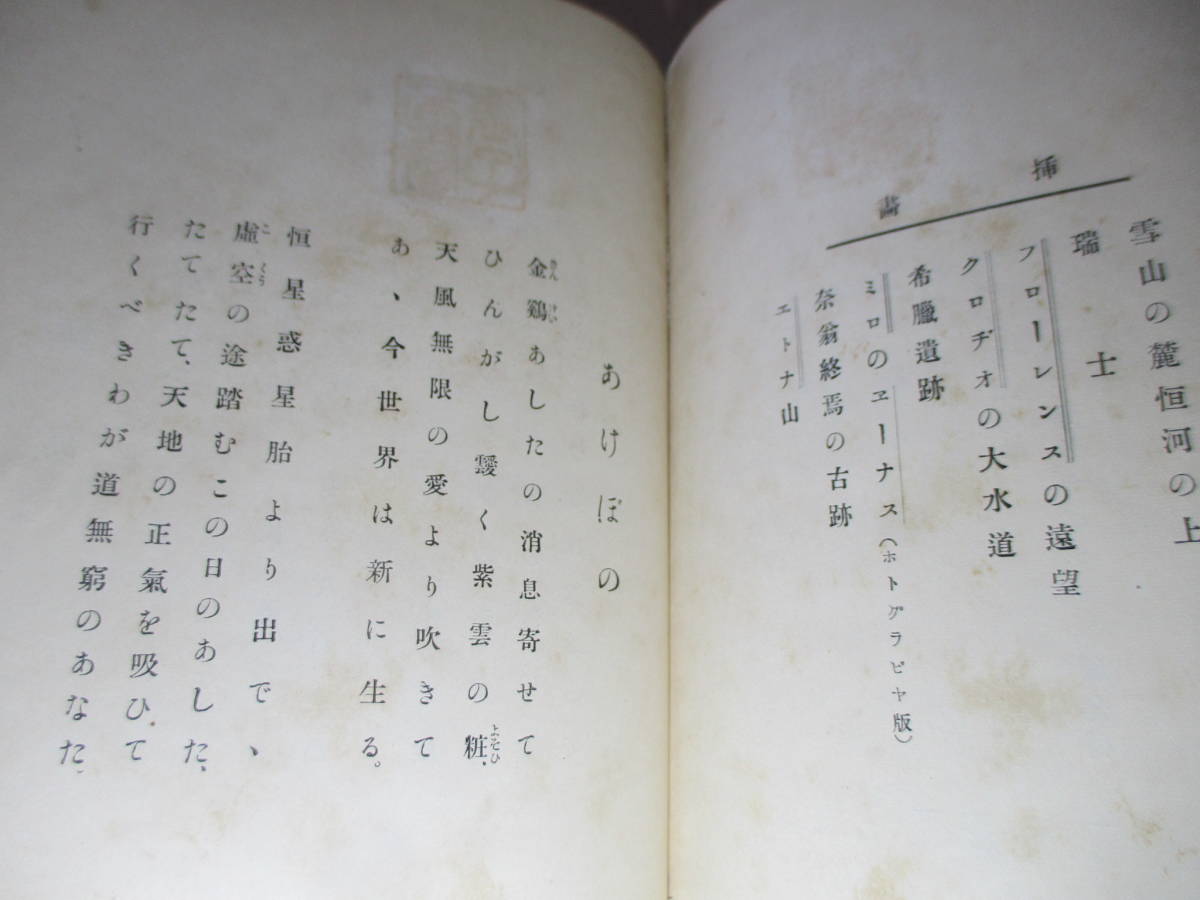 雪山の麓恒河の上
瑞士
フローレンスの遠望
クロヂオの大水道
希臘遺跡
ミロのヱーナス(ホトグラビヤ版)
奈翁終焉の古跡
エトナ山
挿畵
あけぼの
金鷄あしたの消息寄せて
ひんがし靉く紫雲の粧、
天風無限の愛より吹きて
あゝ今世界は新に生る。
恒星惑星胎より出でゝ
虛空の途踏むこの日のあした、
たてたて、天地の正氣を吸ひて
行くべきわが道無窮のあなた、